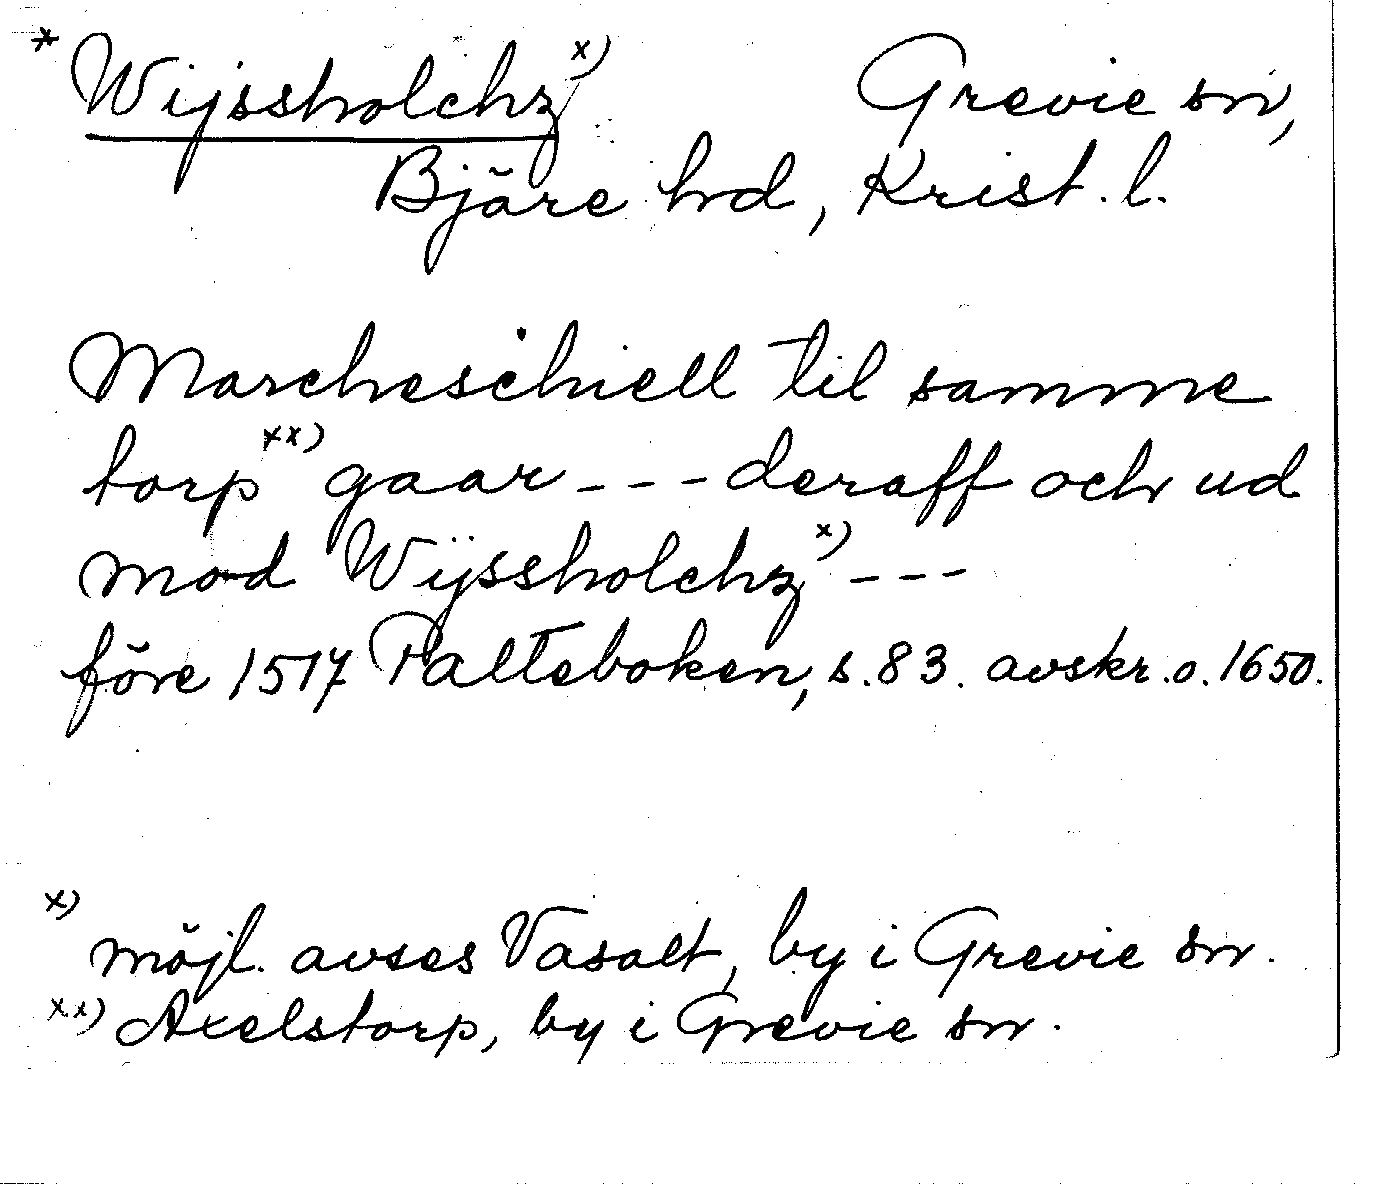 * Wijssholchz x) Grevie sn,
Bjäre hrd, Krist. l.
Marcheschiell til samme
torp xx) gaar --- deraff och ud
mod Wijssholchz x) ---
före 1517 Palteboken, s. 83. avskr. o. 1650.
x) möjl. avses Vasalt, by i Grevie sn.
xx) Axelstorp, by i Grevie sn.